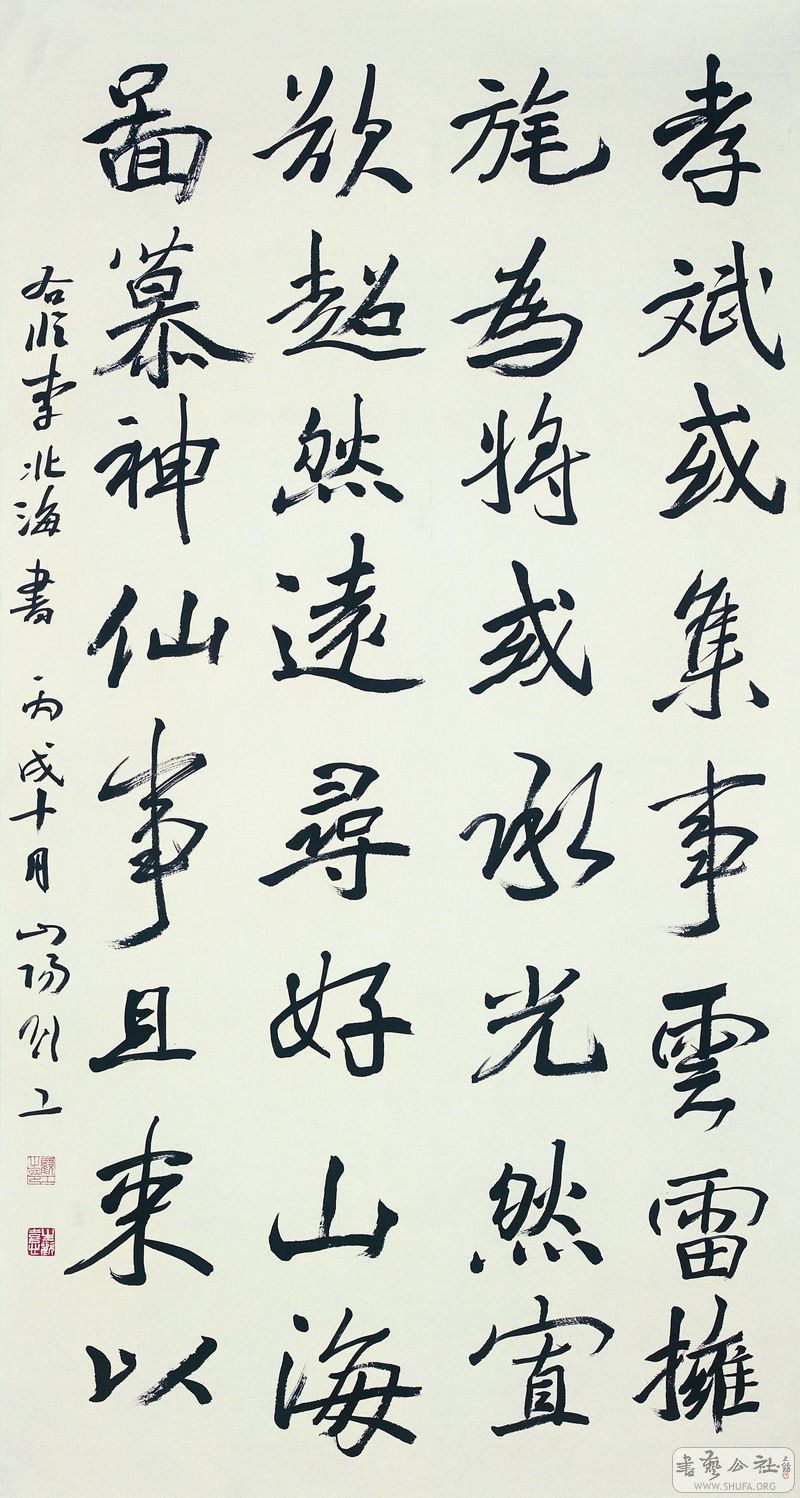 孝斌或集事雲雷擁
旄為將或承光然宜
欲超然遠尋好山海
啚慕神仙事且來以
右臨李北海書 丙戌十月 山陽
書藝公社
WWW.SHUFA.ORG